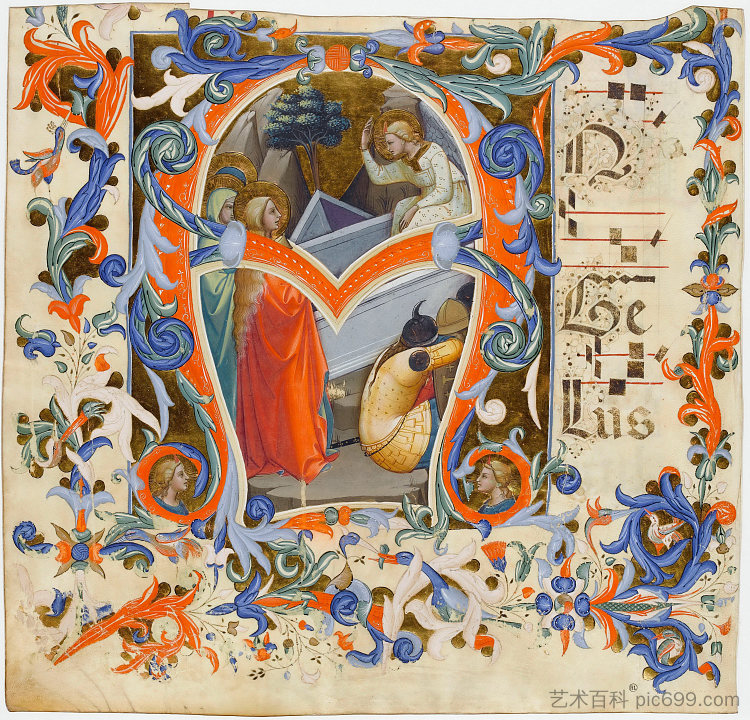 N
Ge
lus
艺术百科 pic699.com